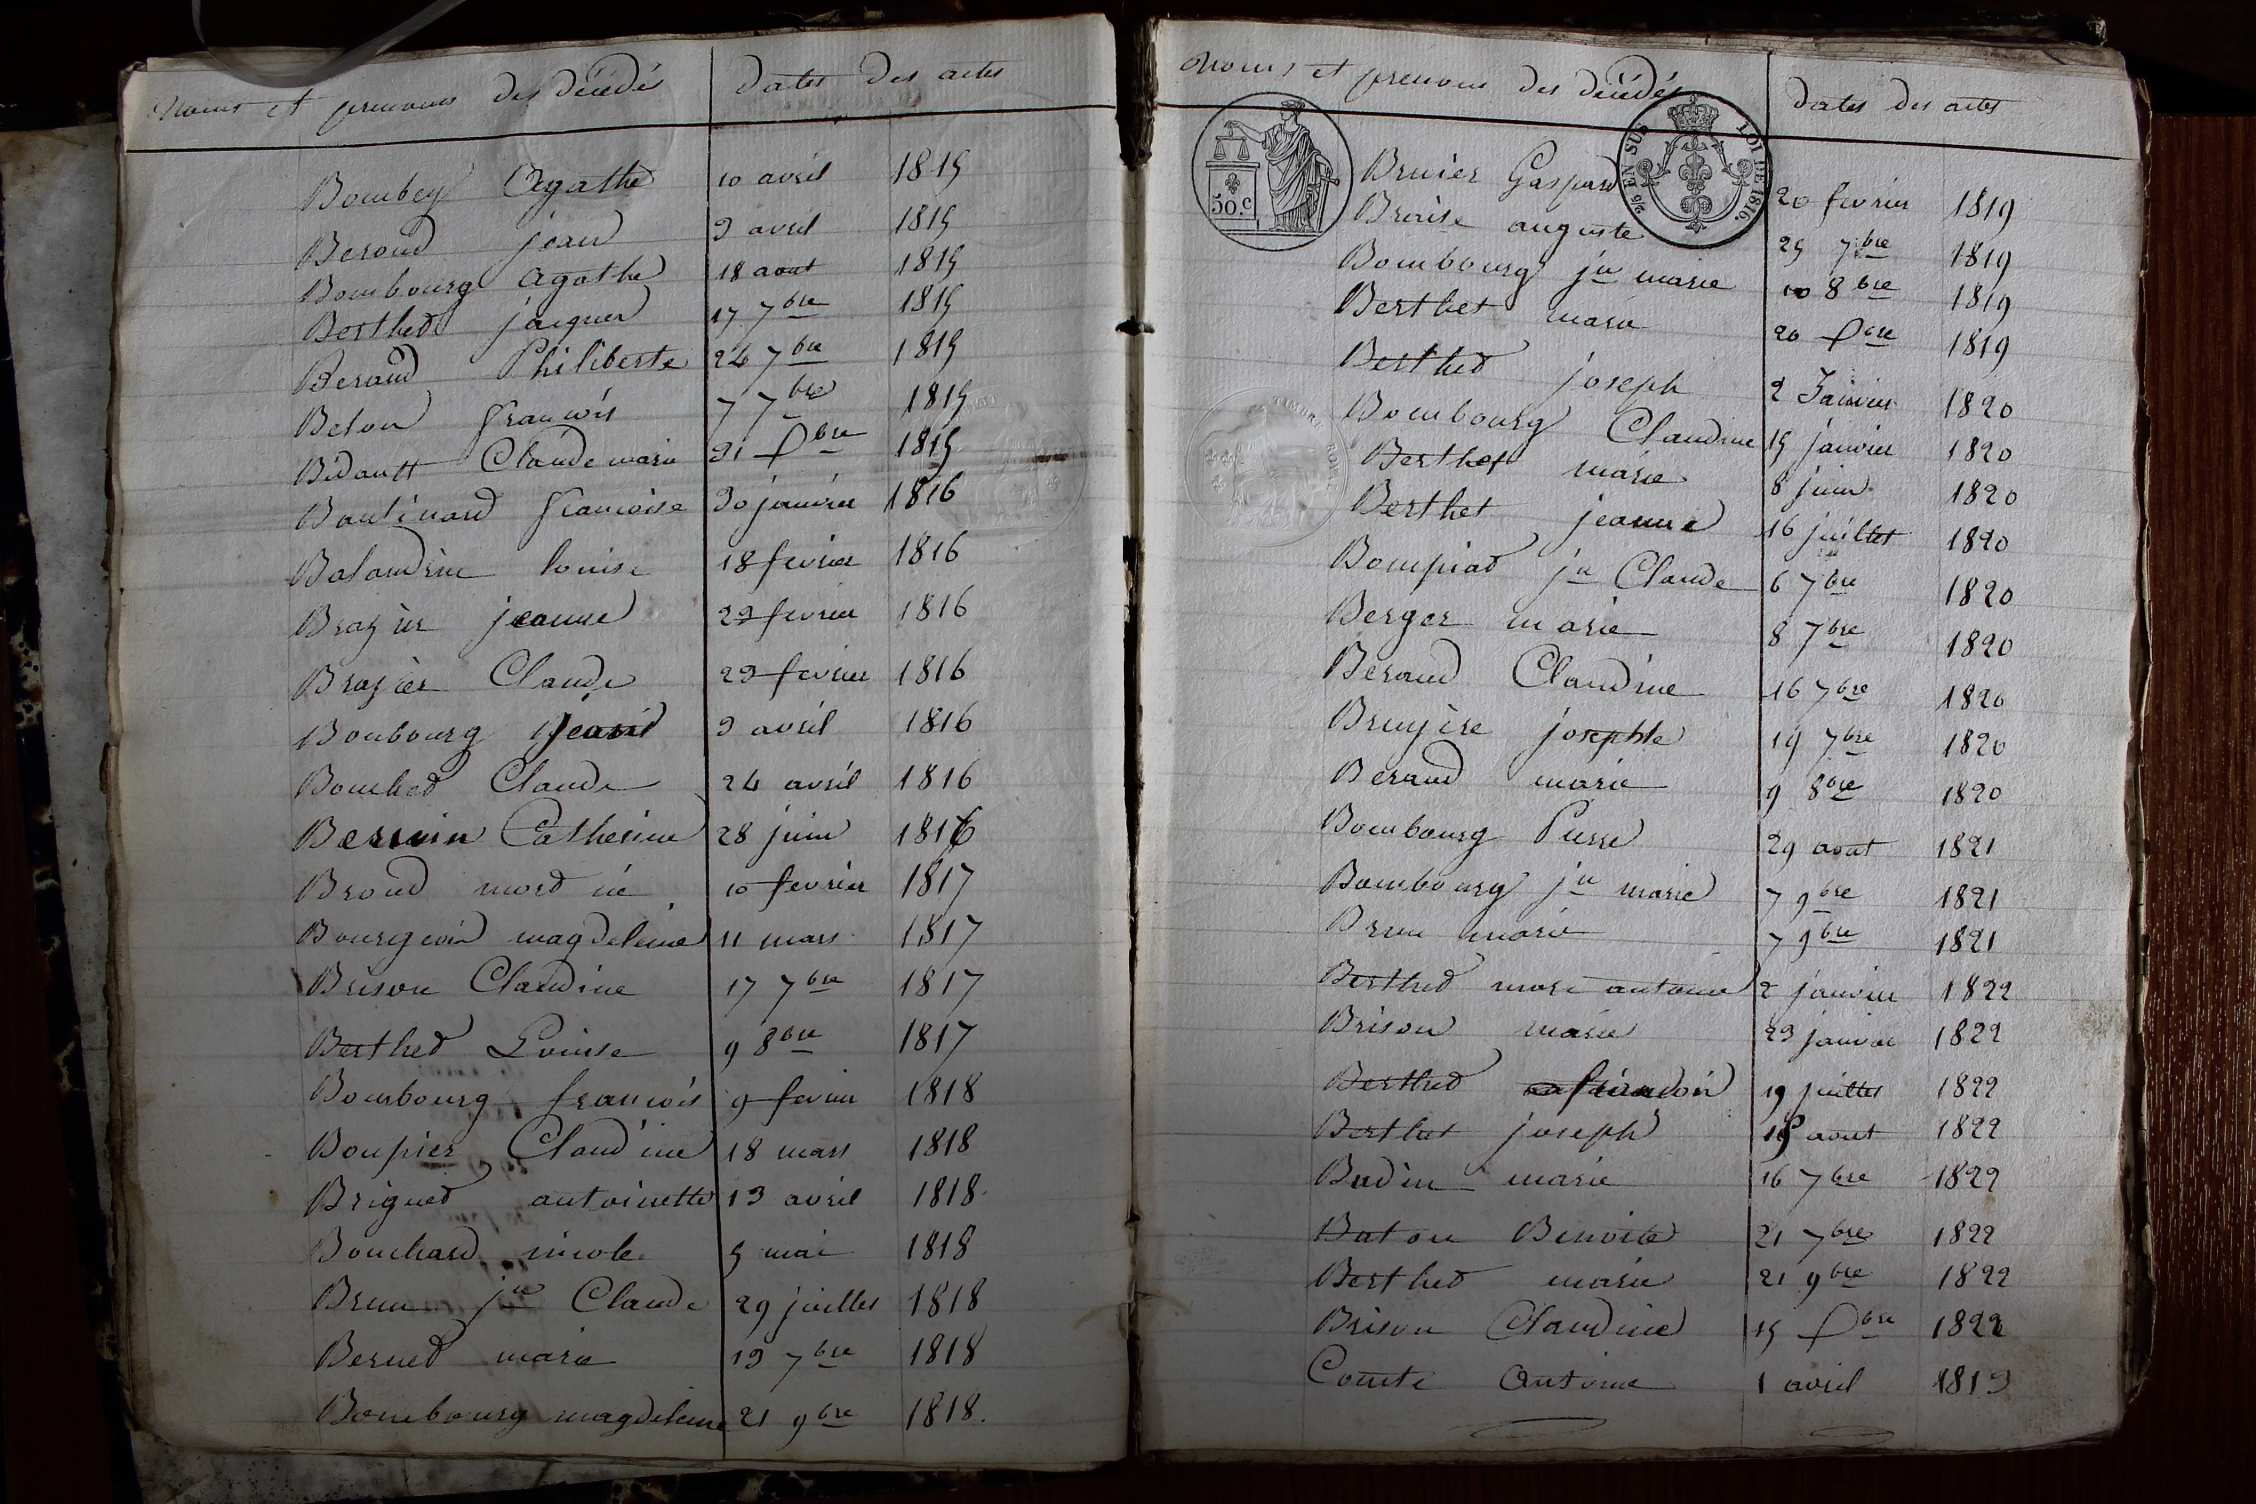 Noms et prenoms des décédés dates des actes
Bombey Agathe 10 avril 1815
Beroud jean 3 avril 1815
Bombourg agathe 18 aout 1815
Berthed jacques 17 7bre 1815
Beraud Philiberte 24 7bre 1815
Beton françois 7 7bre 1815
Bidautt Claude marie 31 Dbre 1815
Bautinard françoise 30 janvier 1816
Balandrin louise 18 fevrier 1816
Brazier jeanne 23 fevrier 1816
Brazier Claude 23 fevrier 1816
Boubourg jean 3 avril 1816
Bouched Claude 24 avril 1816
Catherine 28 juin 1816
Broud mort né 10 fevrier 1817
Bourgeois magdeleine 11 mars 1817
Brison Claudine 17 7bre 1817
Berthed Louise 9 8bre 1817
Bombourg françois 9 fevrier 1818
Boupier Claudine 18 mars 1818
Brigued antoinette 13 avril 1818
Bouchard nicole 5 mai 1818
Brun jn Claude 29 juillet 1818
Berned marie 13 7bre 1818
Bombourg magdeleine 21 9bre 1818.
Noms et prenoms des décédés dates des actes
50.c
2/5 EN SUS LOI DE 1816.
TIMBRE ROYAL
Bruier Gaspard 20 fevrier 1819
Braise auguste 25 7bre 1819
Bombourg jn marie 10 8bre 1819
Berthet marie 20 Dbre 1819
Berthed joseph 2 Janvier 1820
Bombourg Claudine 15 janvier 1820
Berthet marie 8 juin 1820
Berthet jeanne 16 juillet 1820
Boupiad jn Claude 6 7bre 1820
Berger marie 8 7bre 1820
Beraud Claudine 16 7bre 1820
Bruyère josephte 19 7bre 1820
Beraud marie 9 8bre 1820
Bombourg Pierre 29 aout 1821
Bombourg jn marie 7 9bre 1821
Brun marie 7 9bre 1821
Berthed marc antoine 2 janvier 1822
Brison marie 23 janvier 1822
Berthed 19 juillet 1822
Berthet joseph aout 1822
Budin marie 16 7bre 1822
Baton Benoite 21 7bre 1822
Berthed marie 21 9bre 1822
Brison Claudine 15 Dbre 1822
Comte Antoine 1 avril 1813